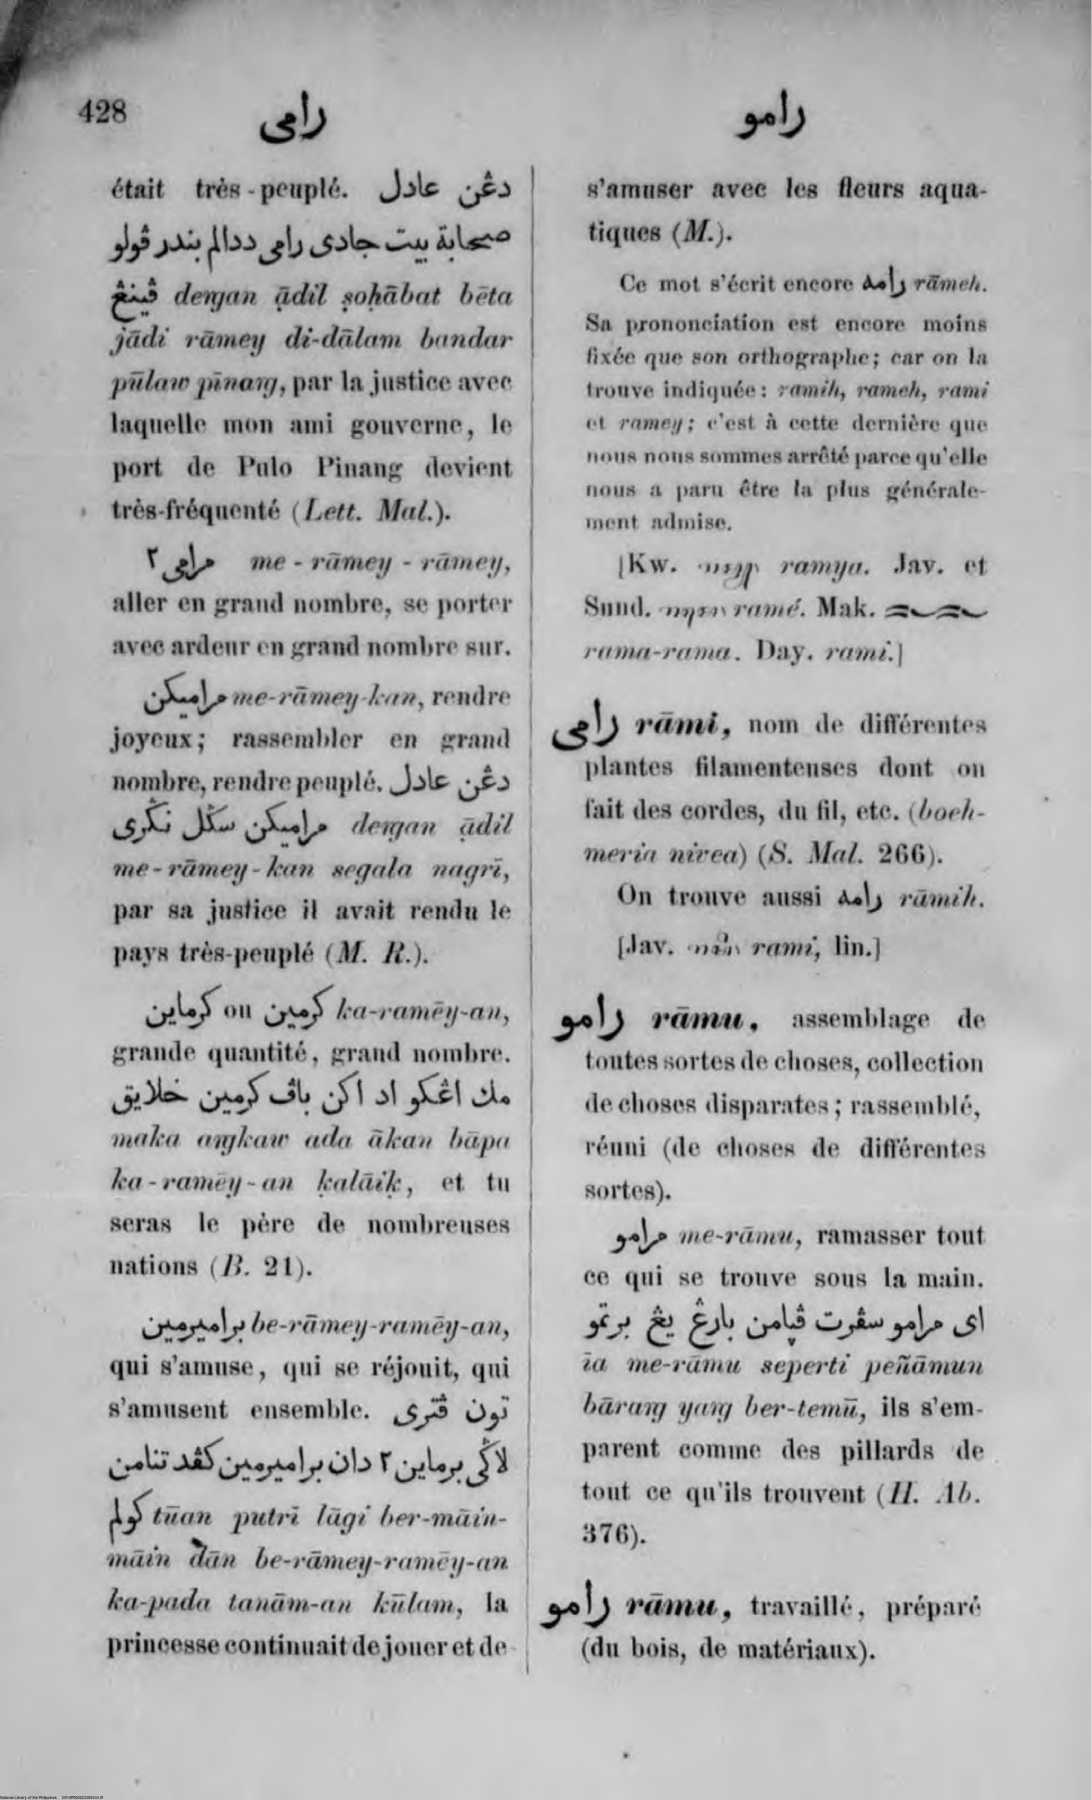 428
رامى
رامو
était très-peuplé. دڠن عادل
صحابة بيت جادى رامى ددالم بندر ڤولو
ڤينڠ deṅan ạ̄dil ṣoḥābat bēta
jādi rāmey di-dālam bandar
pūlaw pīnaṅ, par la justice avec
laquelle mon ami gouverne, le
port de Pulo Pinang devient
très-fréquenté (Lett. Mal.).
مرامى ٢ me-rāmey-rāmey,
aller en grand nombre, se porter
avec ardeur en grand nombre sur.
مراميكن me-rāmey-kan, rendre
joyeux; rassembler en grand
nombre, rendre peuplé. دڠن عادل
مراميكن سݢل نݢرى deṅan ạ̄dil
me-rāmey-kan segala nagrī,
par sa justice il avait rendu le
pays très-peuplé (M. R.).
كرمين ou كرماين ka-ramēy-an,
grande quantité, grand nombre.
مك اڠكو اد اكن باڤ كرمين خلايق
maka aṅkaw ada ākan bāpa
ka-ramēy-an ḳalāiḳ, et tu
seras le père de nombreuses
nations (B. 21).
براميرمين be-rāmey-ramēy-an,
qui s'amuse, qui se réjouit, qui
s'amusent ensemble. تون ڤترى
لاݢى برماين ٢ دان براميرمين كڤد تنامن
كولم tūan putrī lāgi ber-māin-
māin dān be-rāmey-ramēy-an
ka-pada tanām-an kūlam, la
princesse continuait de jouer et de
s'amuser avec les fleurs aqua-
tiques (M.).
Ce mot s'écrit encore رامه rāmeh.
Sa prononciation est encore moins
fixée que son orthographe; car on la
trouve indiquée: ramih, rameh, rami
et ramey; c'est à cette dernière que
nous nous sommes arrêté parce qu'elle
nous a paru être la plus générale-
ment admise.
[Kw. ramya. Jav. et
Sund. ramé. Mak.
rama-rama. Day. rami.]
رامى rāmi, nom de différentes
plantes filamenteuses dont on
fait des cordes, du fil, etc. (boeh-
meria nivea) (S. Mal. 266).
On trouve aussi رامه rāmih.
[Jav. rami, lin.]
رامو rāmu, assemblage de
toutes sortes de choses, collection
de choses disparates; rassemblé,
réuni (de choses de différentes
sortes).
مرامو me-rāmu, ramasser tout
ce qui se trouve sous la main.
اى مرامو سڤرت ڤپامن بارڠ يڠ برتمو
īa me-rāmu seperti peñāmun
bāraṅ yaṅ ber-temū, ils s'em-
parent comme des pillards de
tout ce qu'ils trouvent (H. Ab.
376).
رامو rāmu, travaillé, préparé
(du bois, de matériaux).